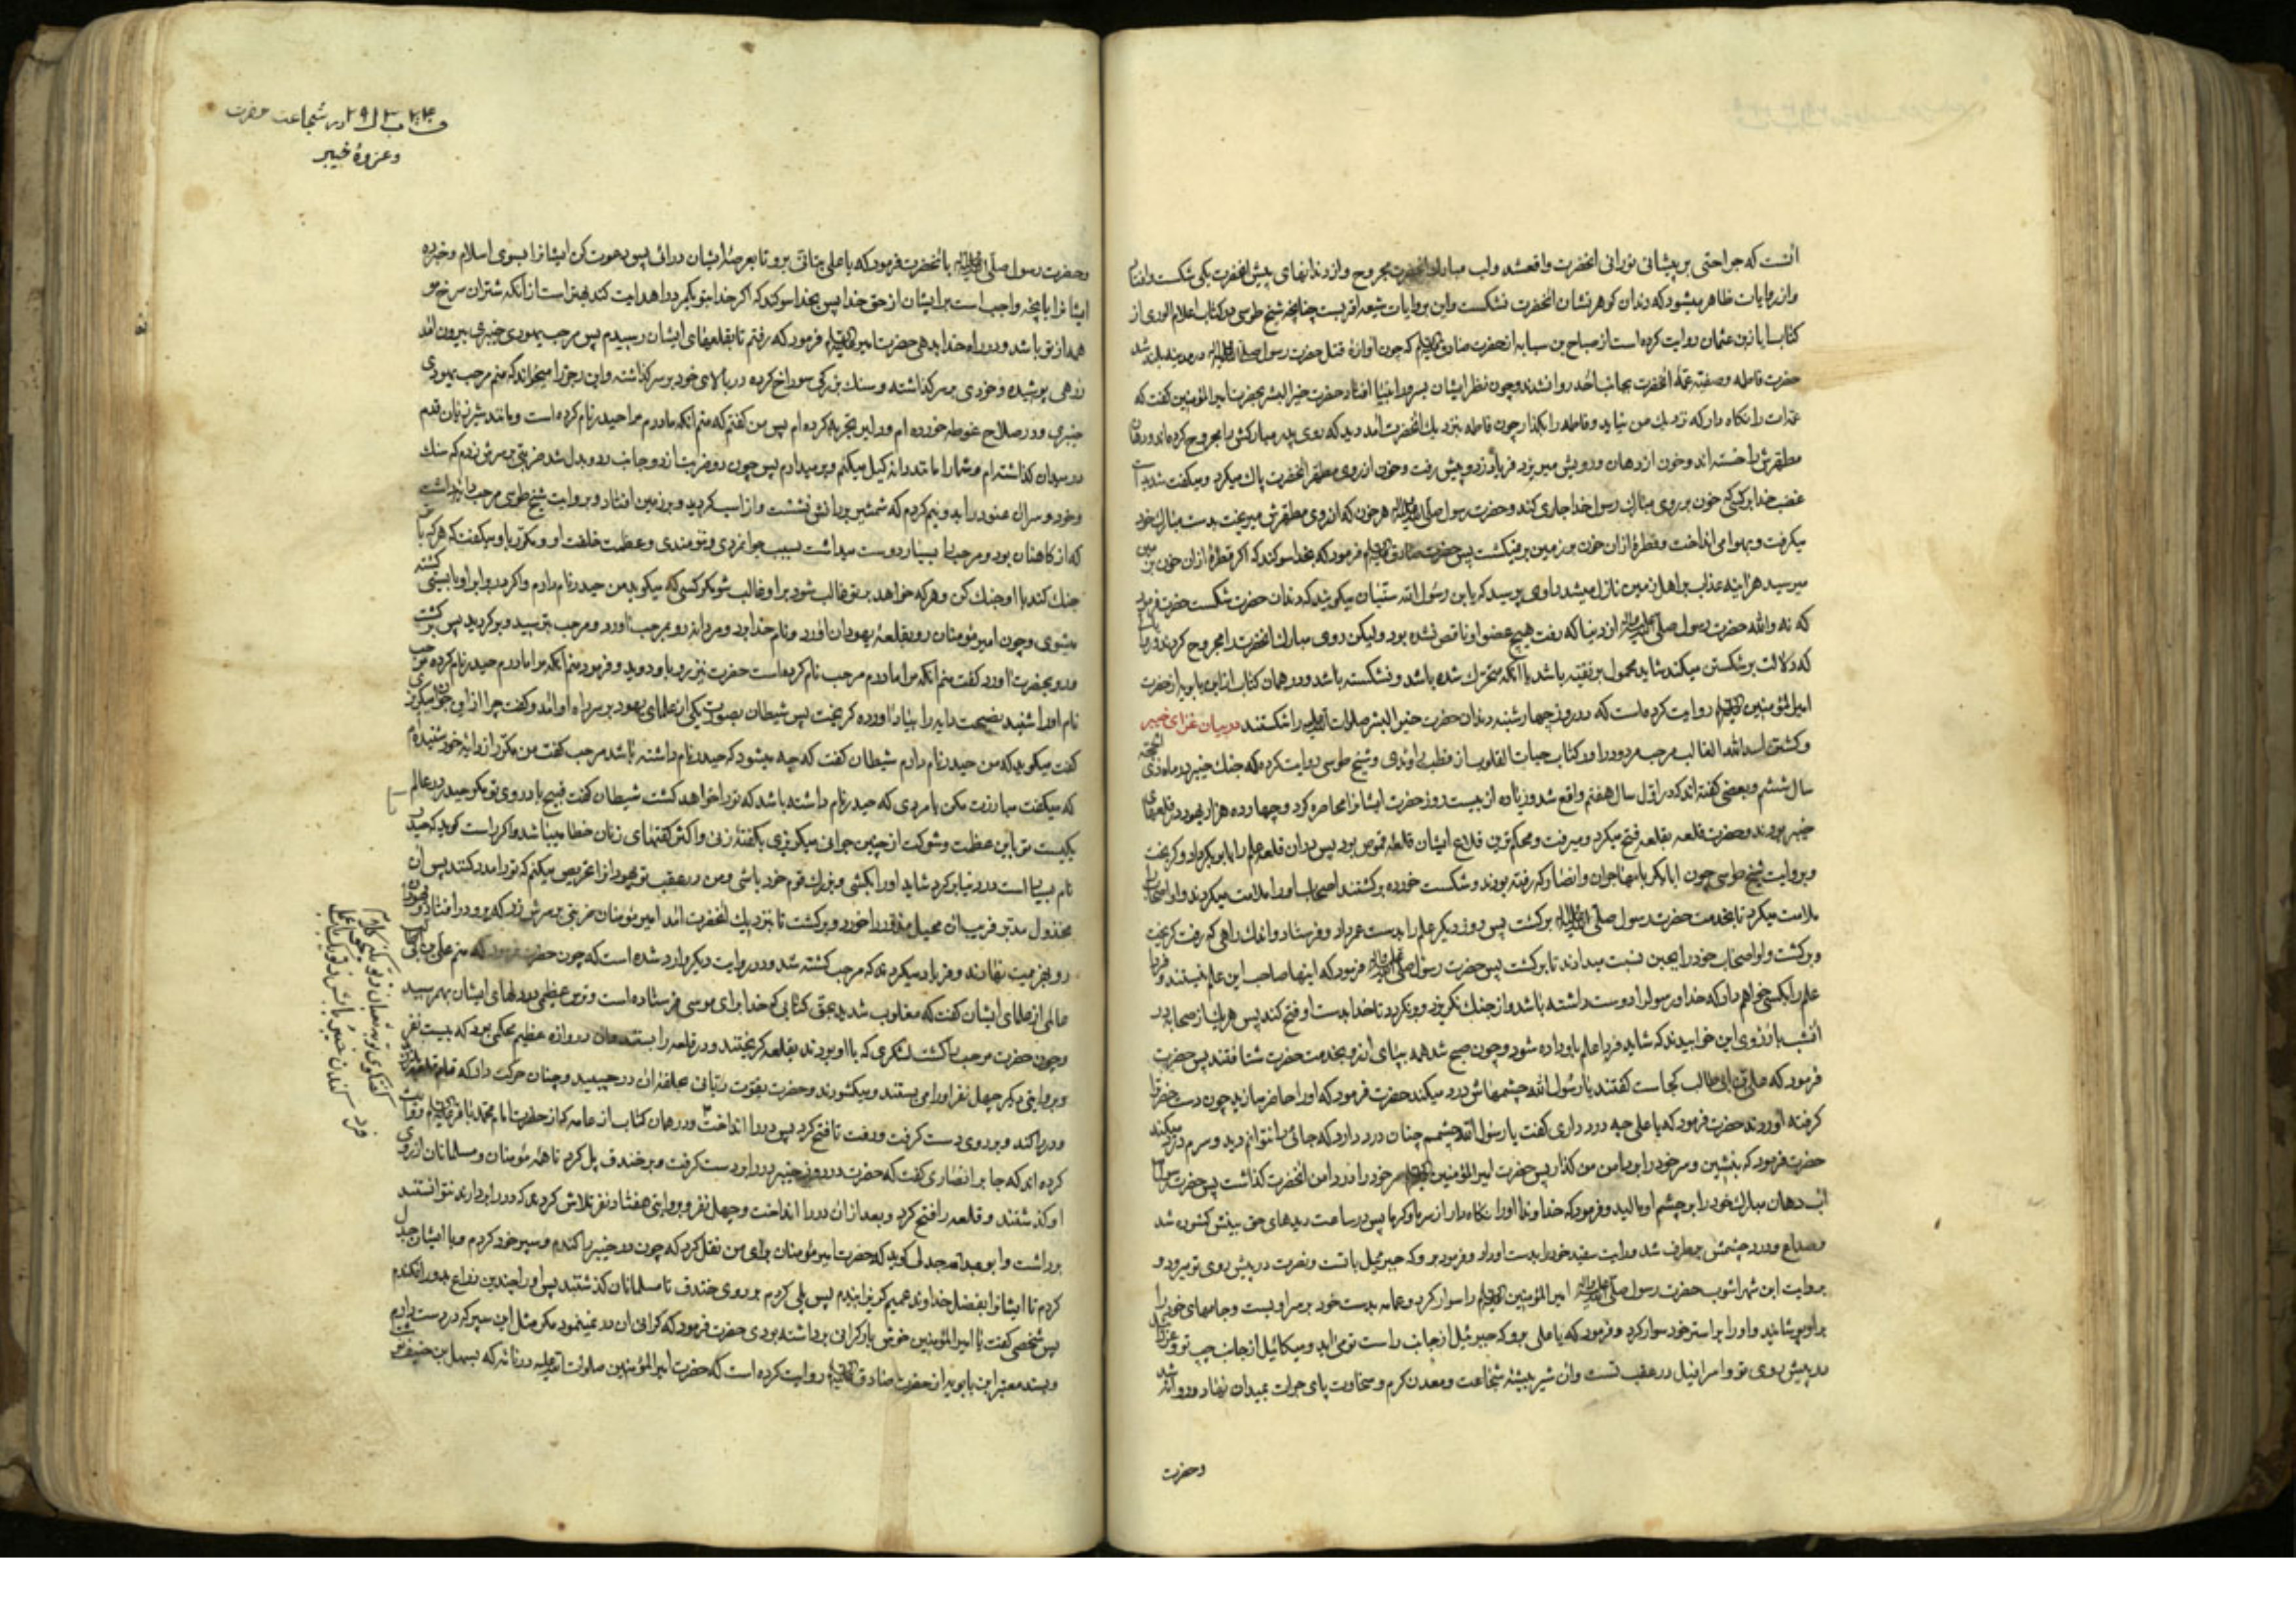 آنست که جراحتی بر پیشانی نورانی آنحضرت واقعشد ولب مبارک آنحضرت مجروح و از دندانهای پیش آنحضرت یکی شکست و افتاد
و از روایات ظاهر میشود که دندان کوهر نشان آنحضرت نشکست و این بروایات شیعه اقربست چنانچه شیخ طوسی در کتاب اعلام الوری از
کتاب ابان بن عثمان روایت کرده است از صباح بن سیابه از حضرت صادق علیه السلام که چون آوازهٔ قتل حضرت رسول صلی الله علیه وآله در مدینه بلند شد
حضرت فاطمه و صفیه عمهٔ آنحضرت بجانب احد روانشدند و چون نظر ایشان بسرور انبیا افتاد حضرت خیر البشر بحضرت امیر المؤمنین گفت که
عمه‌ات را نکاه دار که نزدیك من نیاید و فاطمه را بکذار چون فاطمه بنزدیك آنحضرت آمد دید که روی پدر مبارکش را مجروح کرده‌اند و دهان
مطهرش را خسته‌اند و خون از دهان و رویش میریزد فریاد زد و پیش رفت و خون از روی مطهر آنحضرت پاك میکرد و میکفت شدید است
غضب خدا بر کسی که خون بر روی مبارك رسول خدا جاری کند و حضرت رسول صلی الله علیه وآله هر خون که از روی مطهرش میریخت بدست مبارك خود
میکرفت و بهوا می انداخت و قطرهٔ ازان خون بر زمین برنمیکشت پس حضرت صادق علیه السلام فرمود که بخدا سوکند که اکر قطرهٔ ازان خون بر زمین
میرسید هراینه عذاب بر اهل زمین نازل میشد راوی پرسید که یابن رسول الله سنّیان میکویند که دندان حضرت شکست حضرت فرمود
که نه والله حضرت رسول صلی الله علیه وآله از دنیا که رفت هیچ عضو او ناقص نشده بود ولیکن روی مبارك آنحضرت را مجروح کردند و روایات
که دلالت بر شکستن میکند شاید محمول بر تقیّه باشد یا آنکه متحرك شده باشد و نشکسته باشد و در همان کتاب از ابن بابویه از حضرت
امیر المؤمنین علیه السلام روایت کرده است که در روز چهارشنبه دندان حضرت خیر البشر صلوات الله علیه را شکستند در بیان غزای خیبر
و کشتن اسد الله الغالب مرحب مردود را در کتاب حیات القلوب از قطب راوندی و شیخ طوسی روایت کرده که جنك خیبر در ماه ذی الحجّه
سال ششم و بعضی کفته‌اند که در اوّل سال هفتم واقع شد و زیاده از بیست روز حضرت ایشانرا محاصره کرد و چهارده هزار یهود در قلعهای
خیبر بودند و حضرت قلعه بقلعه فتح میکرد و میرفت و محکم‌ترین قلاع ایشان قلعهٔ قموص بود پس بدان قلعه علم را بابوبکر داد و کریخت
و بروایت شیخ طوسی چون ابابکر با مهاجران و انصار که رفته بودند و شکست خورده برکشتند اصحاب او را ملامت میکردند و او اصحاب را
ملامت میکرد تا بخدمت حضرت رسول صلی الله علیه وآله برکشت پس روز دیکر علم را بدست عمر داد و فرستاد و اندك راهی که رفت کریخت
و برکشت و او اصحاب خود را بجبن نسبت میدادند تا برکشت پس حضرت رسول صلی الله علیه وآله فرمود که اینها صاحب این علم نیستند و فردا
علم را بکسی خواهم داد که خدا و رسول را دوست داشته باشد و از جنك نکریزد و برنکردد تا خدا بدست او فتح کند پس هر یك از صحابه در
آنشب بآرزوی این خوابیدند که شاید فردا علم باو داده شود و چون صبح شد همه بخدمت حضرت شتافتند پس حضرت
فرمود که علی بن ابی طالب کجاست کفتند یا رسول الله چشمهاش درد میکند حضرت فرمود که او را حاضر سازید چون دست حضرت را
کرفته آوردند حضرت فرمود که یا علی چه درد داری کفت یا رسول الله چشمم چنان درد دارد که جائی را نتوانم دید و سرم درد میکند
حضرت فرمود که بنشین و سر خود را بدامن من کذار پس حضرت امیر المؤمنین علیه السلام سر خود را در دامن آنحضرت کذاشت پس حضرت
آب دهان مبارك خود را بر چشم او مالید و فرمود که خداوندا او را نکاه دار از سرما و کرما پس در ساعت دیدهای حق بینش کشوده شد
و صداع و درد چشمش برطرف شد و رایت سفید خود را بدست او داد و فرمود برو که جبرئیل با تست و نصرت در پیش روی تو میرود و
بروایت ابن شهراشوب حضرت رسول صلی الله علیه وآله امیر المؤمنین علیه السلام را سوار کرد و عمامه بدست خود بر سر او بست و جامهای خود را
بر او پوشانید و او را بر استر خود سوار کرد و فرمود که یا علی برو که جبرئیل از جانب راست تو می‌آید و میکائیل از جانب چپ تو و عزرائیل
در پیش روی تو و اسرافیل در عقب تست و آن شیر بیشهٔ شجاعت و معدن کرم و سخاوت پای جرات بمیدان نهاد و روانه شد
و حضرت
در شجاعت حضرت
و غزوهٔ خیبر
و حضرت رسول صلی الله علیه وآله با آنحضرت فرمود که یا علی برو تا بعرصهٔ ایشان درآئی پس دعوت کن ایشانرا بسوی اسلام و خبر ده
ایشانرا بآنچه واجب است بر ایشان از حق خدا پس بخدا سوکند که اکر خدا بتو یکمرد را هدایت کند بهتر است از آنکه شتران سرخ مو
همه از تو باشد و در راه خدا بدهی حضرت امیر علیه السلام فرمود که رفتم تا بقلعهای ایشان رسیدم پس مرحب یهودی خیبری بیرون آمد
زرهی پوشیده و خودی بر سر کذاشته و سنك بزرکی سوراخ کرده در بالای خود بر سر کذاشته و این رجز را میخواند که منم مرحب یهودی
خیبری و در سلاح غوطه خورده‌ام و دلیر تجربه کرده‌ام پس من کفتم که منم آنکه مادرم مرا حیدر نام کرده است و مانند شیر نر قدم
در میدان کذاشته‌ام و شما را مانند دانه کیل میکنم پس چون دو ضربت از دو جانب رد و بدل شد ضربتی بر سرش زدم که سنك
و خود و سر آن عنود را بدو نیم کردم که شمشیر بر دندانش نشست و از اسب کردید و بر زمین افتاد و بروایت شیخ طوسی مرحب دایه داشت
که از کاهنان بود و مرحب را بسیار دوست میداشت بسبب جوانمردی و تنومندی و عظمت خلقت او و مکرر باو میکفت که هر که با تو
جنك کند با او جنك کن و هر که خواهد بر تو غالب شود بر او غالب شو مکر کسی که میکوید من حیدر نام دارم و اکر در برابر او بایستی کشته
میشوی و چون امیر مؤمنان رو بقلعهٔ یهودان آورد و نام خدا برد و مردانه رو بمرحب آورد و مرحب بترسید و برکردید پس برکشت
و رو بحضرت آورد کفت منم آنکه مرا مادرم مرحب نام کرده است حضرت نیز رو باو دوید و فرمود منم آنکه مرا مادرم حیدر نام کرده مرحب
نام او را شنید نصیحت دایه را بیاد آورده کریخت پس شیطان بصورت یکی از علمای یهود بر سر راه او آمد و کفت چرا از این جوان میکریزی
کفت میکوید که من حیدر نام دارم شیطان کفت که چه میشود که حیدر نام داشته باشد مرحب کفت من مکرر از دایهٔ خود شنیده‌ام
که میکفت مبارزت مکن با مردی که حیدر نام داشته باشد که ترا خواهد کشت شیطان کفت قبیح باد روی تو مکر حیدر در عالم
یکیست تو باین عظمت و شوکت از چنین جوانی میکریزی بکفتهٔ زنی و اکثر کفتهای زنان خطا میباشد و اکر راست کوید که حیدر
نام بسیار است در دنیا برکرد شاید او را بکشی و بزرك قوم خود باشی و من در عقب تو یهودانرا تحریص میکنم که ترا مدد کنند پس آن
مخذول بدتر فریب آن محیل مدبر را خورد و برکشت تا بنزدیك آنحضرت آمد امیر مؤمنان ضربتی بر سرش زد که برو در افتاد و یهودان
رو بهزیمت نهادند و فریاد میکردند که مرحب کشته شد و در روایت دیکر وارد شده است که چون حضرت فرمود که منم علی بن ابی طالب
عالمی از علمای ایشان کفت که مغلوب شدید بحق کتابی که خدا برای موسی فرستاده است و ترس عظیمی در دلهای ایشان بهم رسید
و چون حضرت مرحب را کشت لشکری که با او بودند بقلعه کریختند و در قلعه را بستند و آن دروازه عظیم محکمی بود که بیست نفر
و بروایتی دیکر چهل نفر او را می بستند و میکشودند و حضرت بقوّت ربّانی حلقهٔ آن در چسپید و چنان حرکت داد که تمام قلعه
و در را کند و بر روی دست کرفت و رفت تا فتح کرد پس در را انداخت و در همان کتاب از عامه که از حضرت امام محمّد باقر علیه السلام روایت
کرده‌اند که جابر انصاری کفت که حضرت در روز خیبر در را بر دست کرفت و بر خندق پل کرد تا همه مؤمنان و مسلمانان از روی
او کذشتند و قلعه را فتح کرد و بعد ازان در را انداخت و چهل نفر و بروایتی هفتاد نفر تلاش کردند که در را بردارند نتوانستند
برداشت و ابو عبد الله جدلی کوید که حضرت امیر مؤمنان برای من نقل کرد که چون در خیبر را کندم و سپر خود کردم و با ایشان جدال
کردم تا ایشانرا بفضل خداوند عمیم کریزاندم پس پلی کردم بر روی خندق تا مسلمانان کذشتند پس او را چندین ذراع بدور افکندم
پس شخصی کفت یا امیر المؤمنین خوش بار کرانی برداشته بودی حضرت فرمود که کرانی آن در نمینمود مکر مثل این سپر که در دست دارم
و بسند معتبر ابن بابویه از حضرت صادق علیه السلام روایت کرده است که حضرت امیر المؤمنین صلوات الله علیه در نامه که بسهل بن حنیف